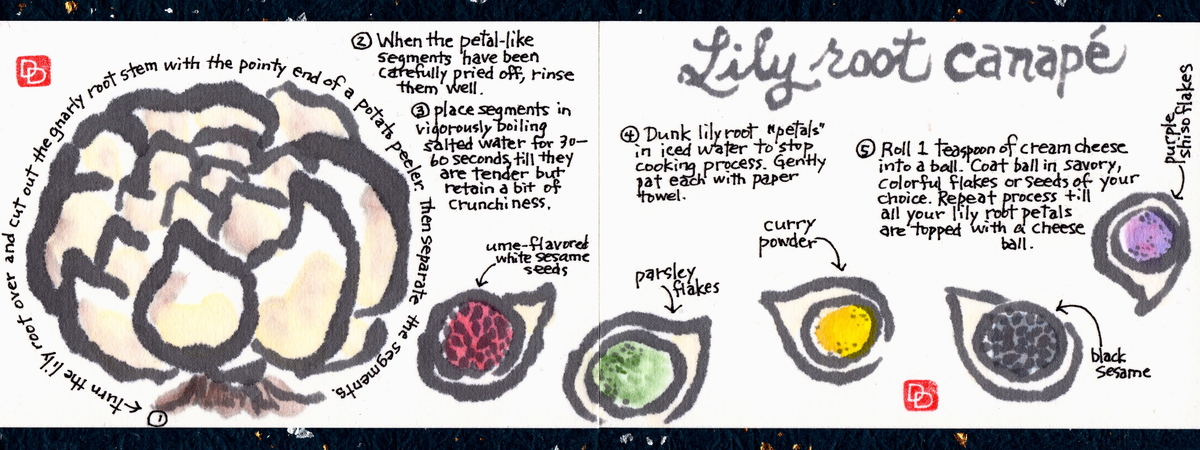 Lily root canapé
① ←turn the lily root over and cut out the gnarly root stem with the pointy end of a potato peeler. Then separate the segments.
② When the petal-like
segments have been
carefully pried off, rinse
them well.
③ place segments in
vigorously boiling
salted water for 30–
60 seconds, till they
are tender but
retain a bit of
crunchiness.
④ Dunk lily root "petals"
in iced water to stop
cooking process. Gently
pat each with paper
towel.
⑤ Roll 1 teaspoon of cream cheese
into a ball. Coat ball in savory,
colorful flakes or seeds of your
choice. Repeat process till
all your lily root petals
are topped with a cheese
ball.
ume-flavored
white sesame
seeds
parsley
flakes
curry
powder
black
sesame
purple
shiso flakes
DD
DD